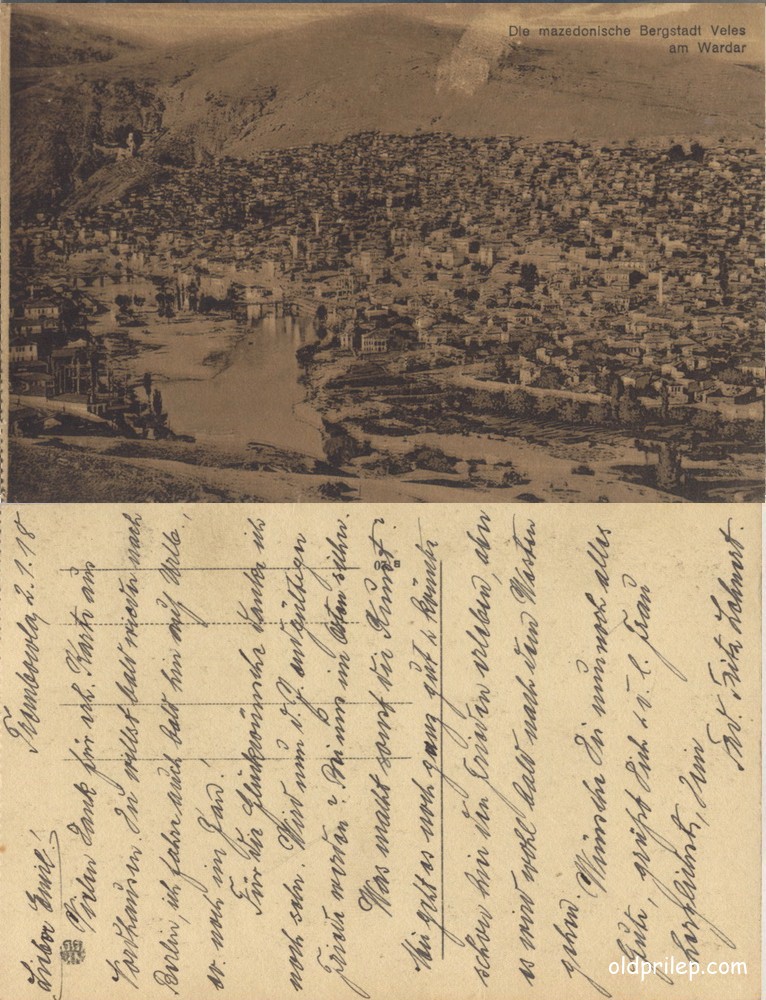 Die mazedonische Bergstadt Veles
am Wardar
Lieber Emil! 2.1.18
Vielen Dank für Karte aus
Du willst bald wieder nach
Berlin, ich fahre auch bald hin auf Urlb.,
Für die Glückwünsche danke ich
noch sehr. Wird uns d. J. endgültigen
Frieden werden? Bei uns im Osten sicher.
Was macht sonst die Kunst?
Mir geht es noch ganz gut u. könnte
schon hier den Frieden erleben, aber
es wird wohl bald nach dem Westen
gehen. Wünsche Dir nun noch alles
Gute, grüßt Dich u. w. l. Frau
herzlichst, Dein
Fritz
oldprilep.com